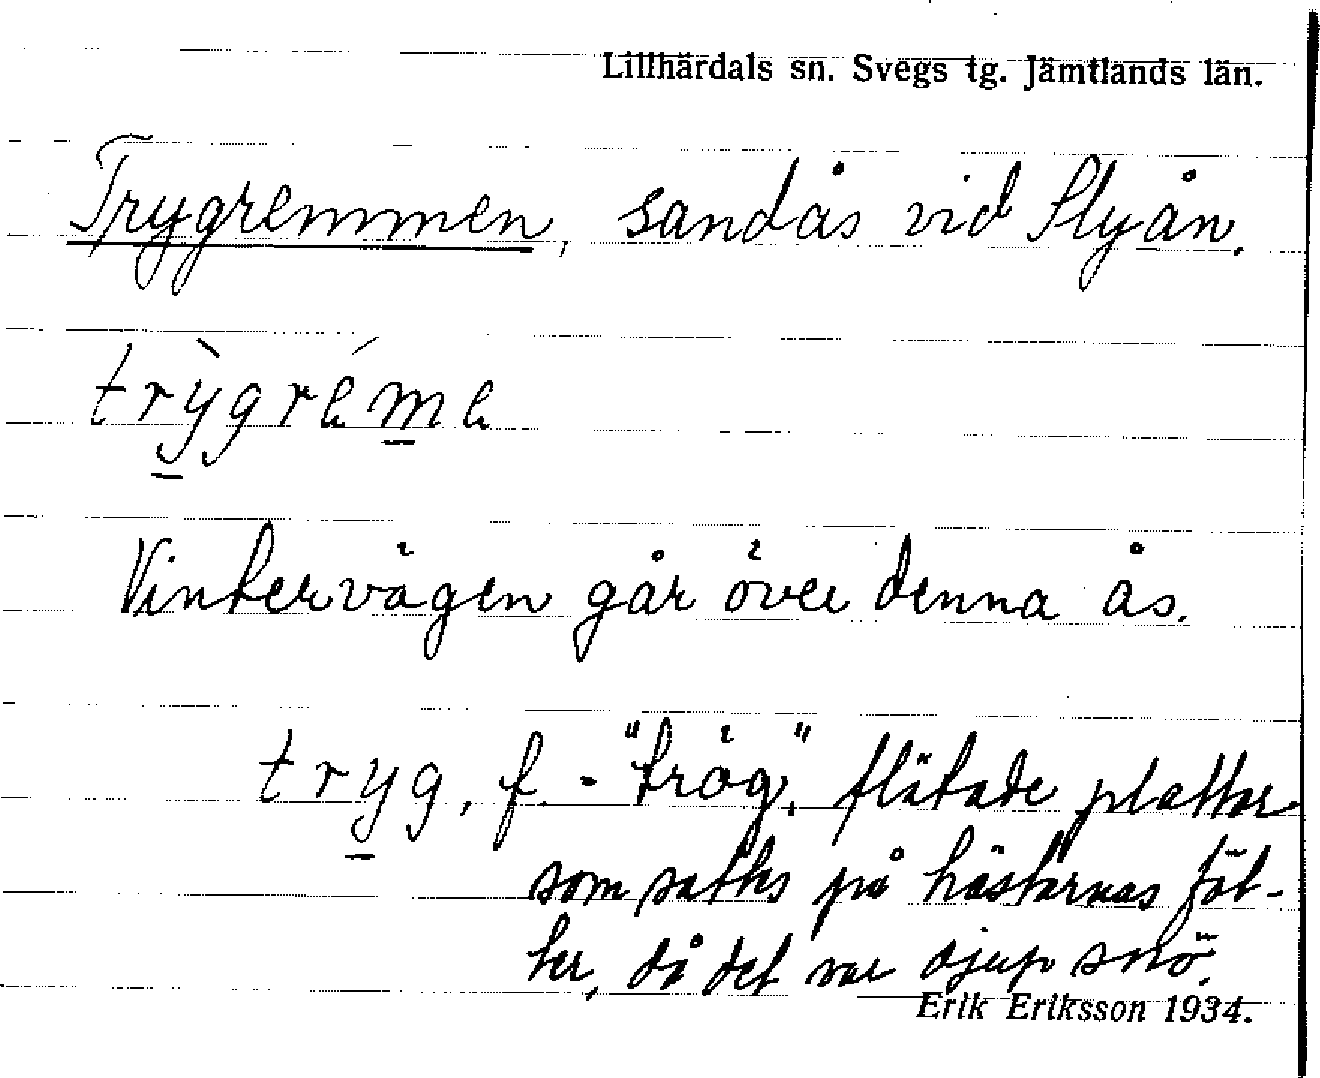 Lillhärdals sn. Svegs tg. Jämtlands län.
Trygremmen, sandås vid Slyån.
trỳgréme
Vintervägen går över denna ås.
tryg, f. - "tròg", flätade plattor
som sattes på hästarnas föt-
ter, då det var djup snö.
Erik Eriksson 1934.